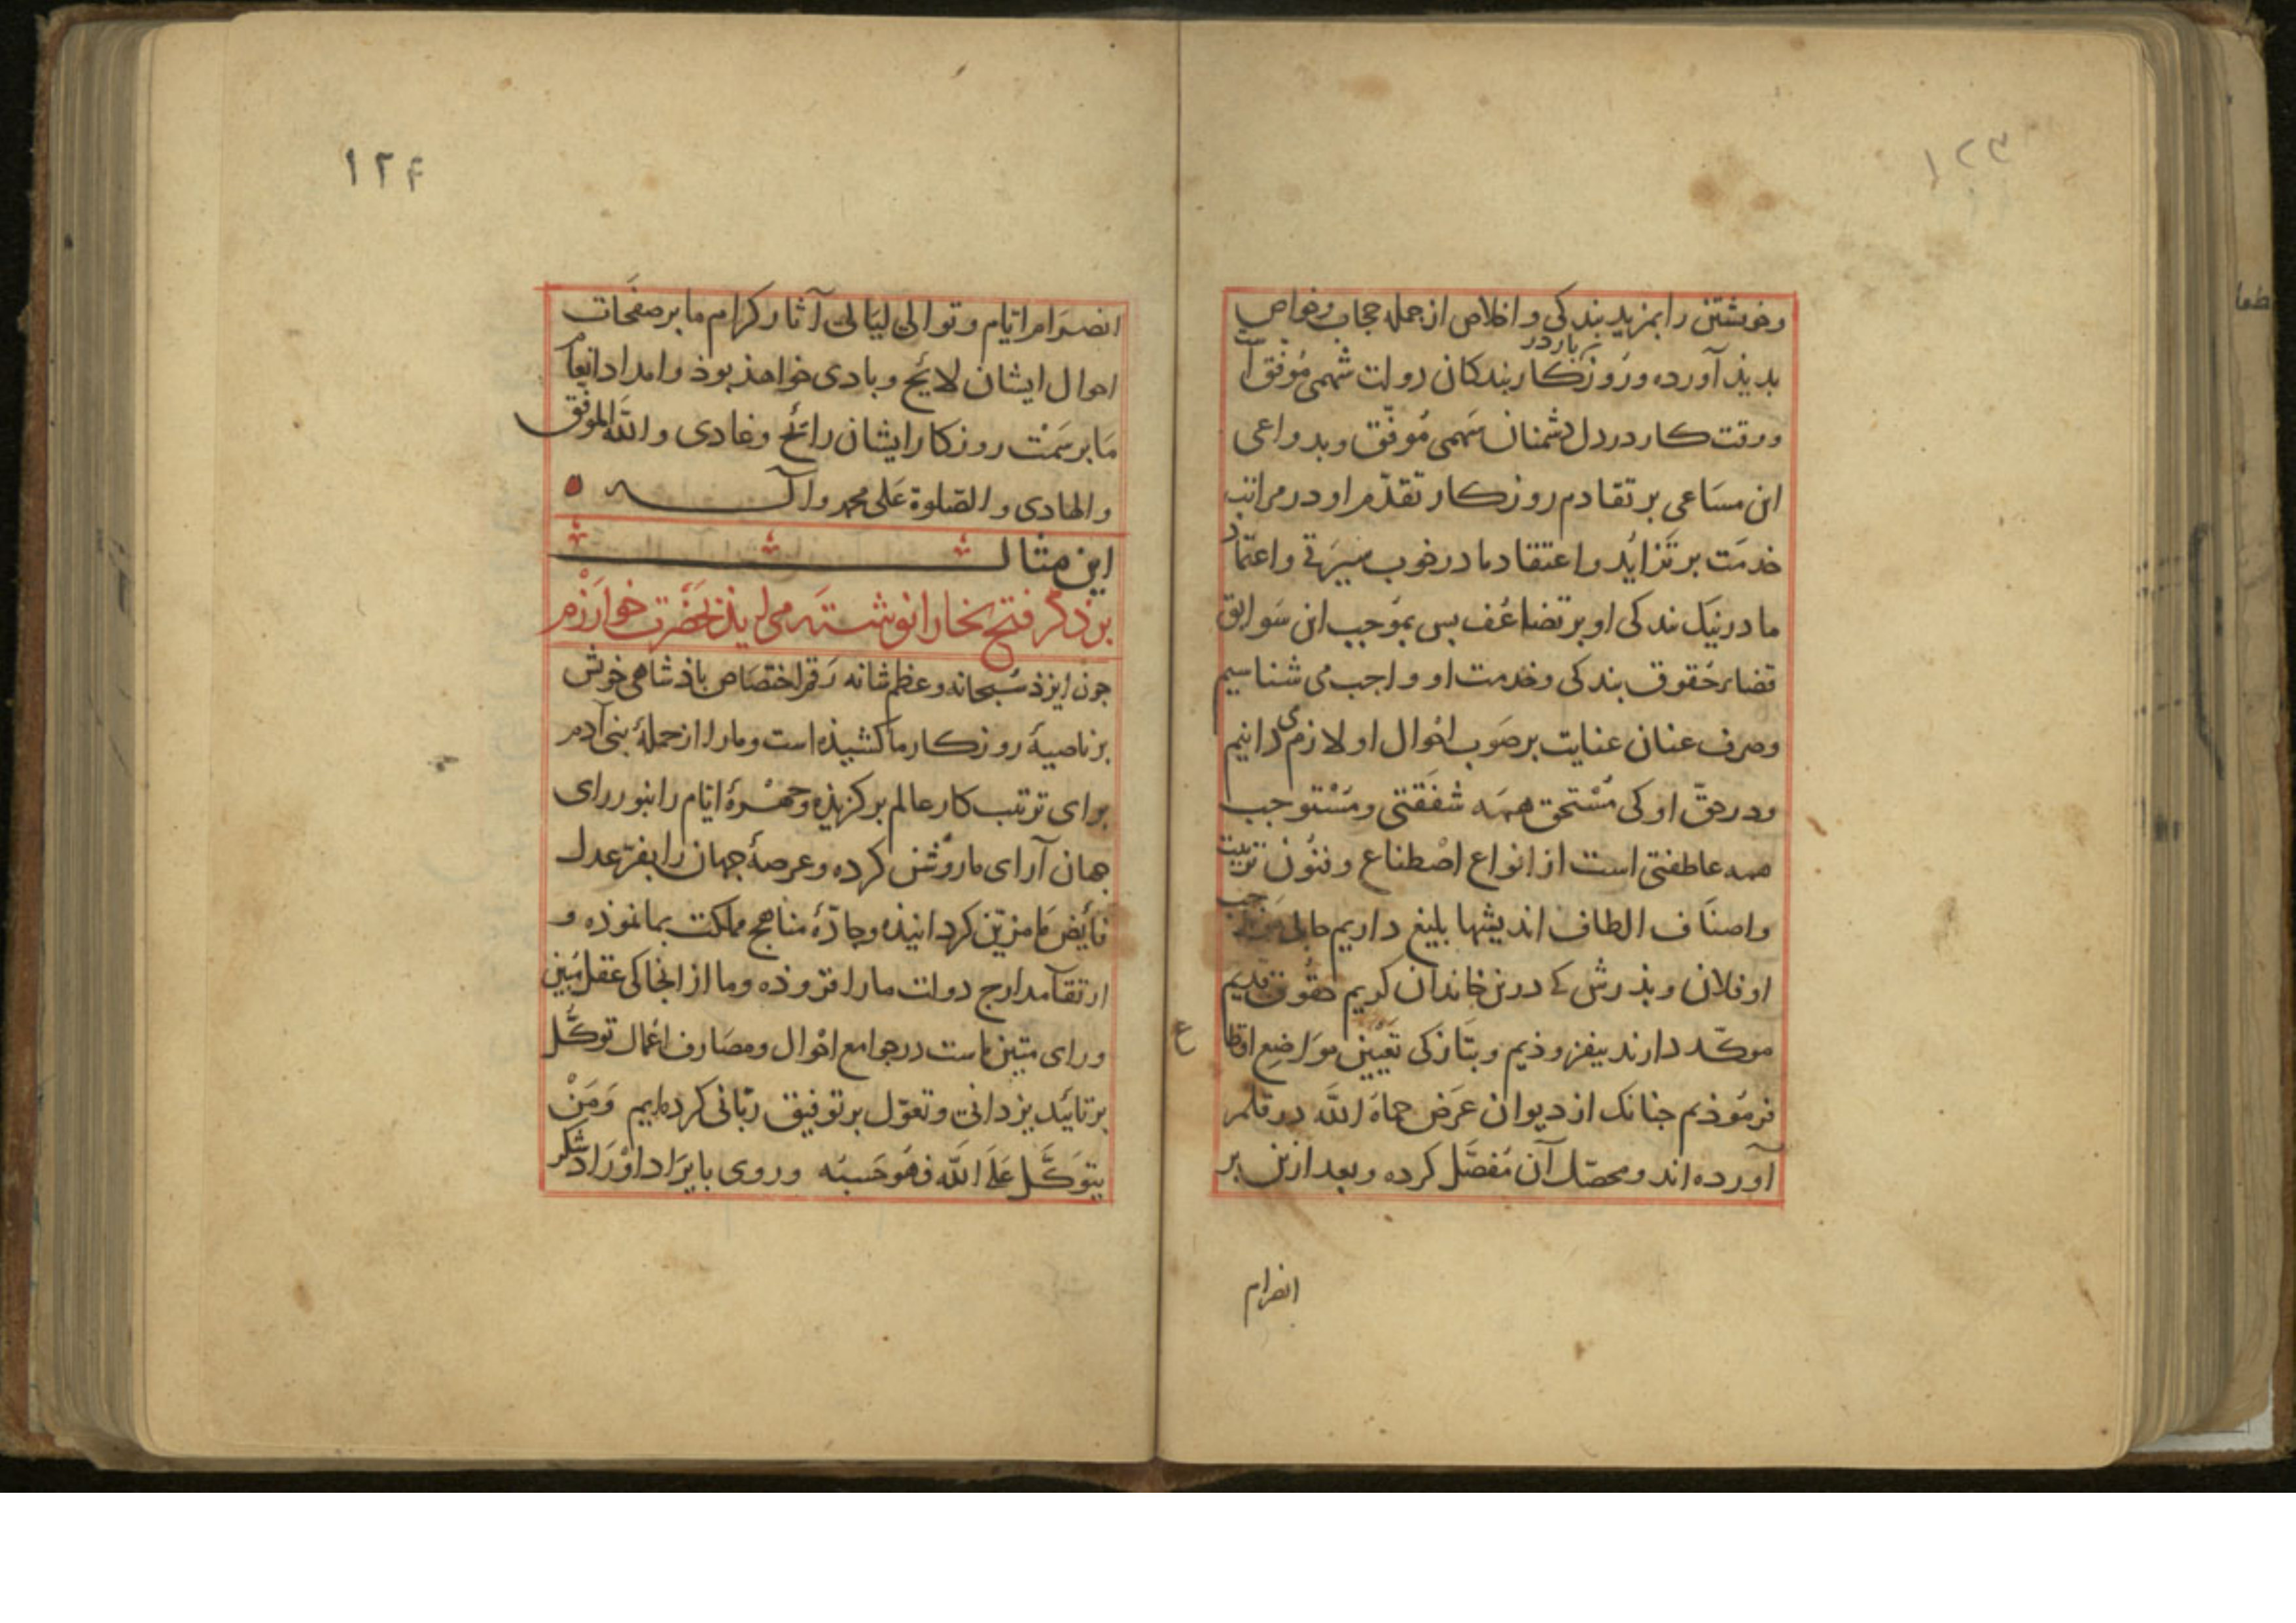 ۱۲۳
وخویشتن را بمزید بندکی و اخلاص از جمله حجاب وخواص
بدیذ آورده وروزکار بندکان دولت شهمی موفق است
ووقت کار در دل دشمنان سهمی موفق وبدواعی
این مساعی بر تقادم روزکار تقدم او در مراتب
خدمت بر تزاید واعتقاد ما در خوب سیرتی واعتماد
ما در نیک بندکی او بر تضاعف بس بموجب این سوابق
قضاء حقوق بندکی وخدمت او واجب می شناسیم
وصرف عنان عنایت بر صوب احوال او لازم می دانیم
ودر حق او کی مستحق همه شفقتی ومستوجب
همه عاطفتی است از انواع اصطناع وفنون تربیت
واصناف الطاف اندیشها بلیغ داریم حالی
او فلان وبذرش کے درین خاندان کریم حقوق قدیم
موکد دارند بیفزوذیم وبتازکی تعیین مواضع اقطاع
فرموذیم جنانک از دیوان عرض حماه الله در قلم
آورده اند ومحصل آن مفصل کرده وبعد ازین بر
انصرام
۱۲۴
انصرام ایام وتوالی لیالی آثار کرام ما بر صفحات
احوال ایشان لائح وبادی خواهذ بوذ وامداد انعام
ما بر سمت روزکار ایشان رائح وغادی والله الموفق
والهادی والصلوة علی محمد وآله
این مثال
بر ذکر فتح بخارا نوشته می اید بحضرت خوارزم
جون ایزذ سبحانه وعظم شانه رقم اختصاص باذشاهی خویش
بر ناصیهٔ روزکار ما کشیذه است وما را از جملهٔ بنی آدم
برای ترتیب کار عالم برکزیذه وجهرهٔ ایام را بنور رای
جهان آرای ما روشن کرده وعرصهٔ جهان را بفر عدل
فایض ما مزین کردانیذه وجادهٔ مناهج مملکت بما نموذه و
ارتقا مدارج دولت ما را افزوذه وما از انجا کی عقل مبین
ورای متین ماست در جوامع احوال ومصارف اعمال توکل
بر تائید یزدانی وتعول بر توفیق ربانی کرده ایم وَمَنْ
یتوکّل علی الله فهو حسبه وروی بایراد اوراد شکر